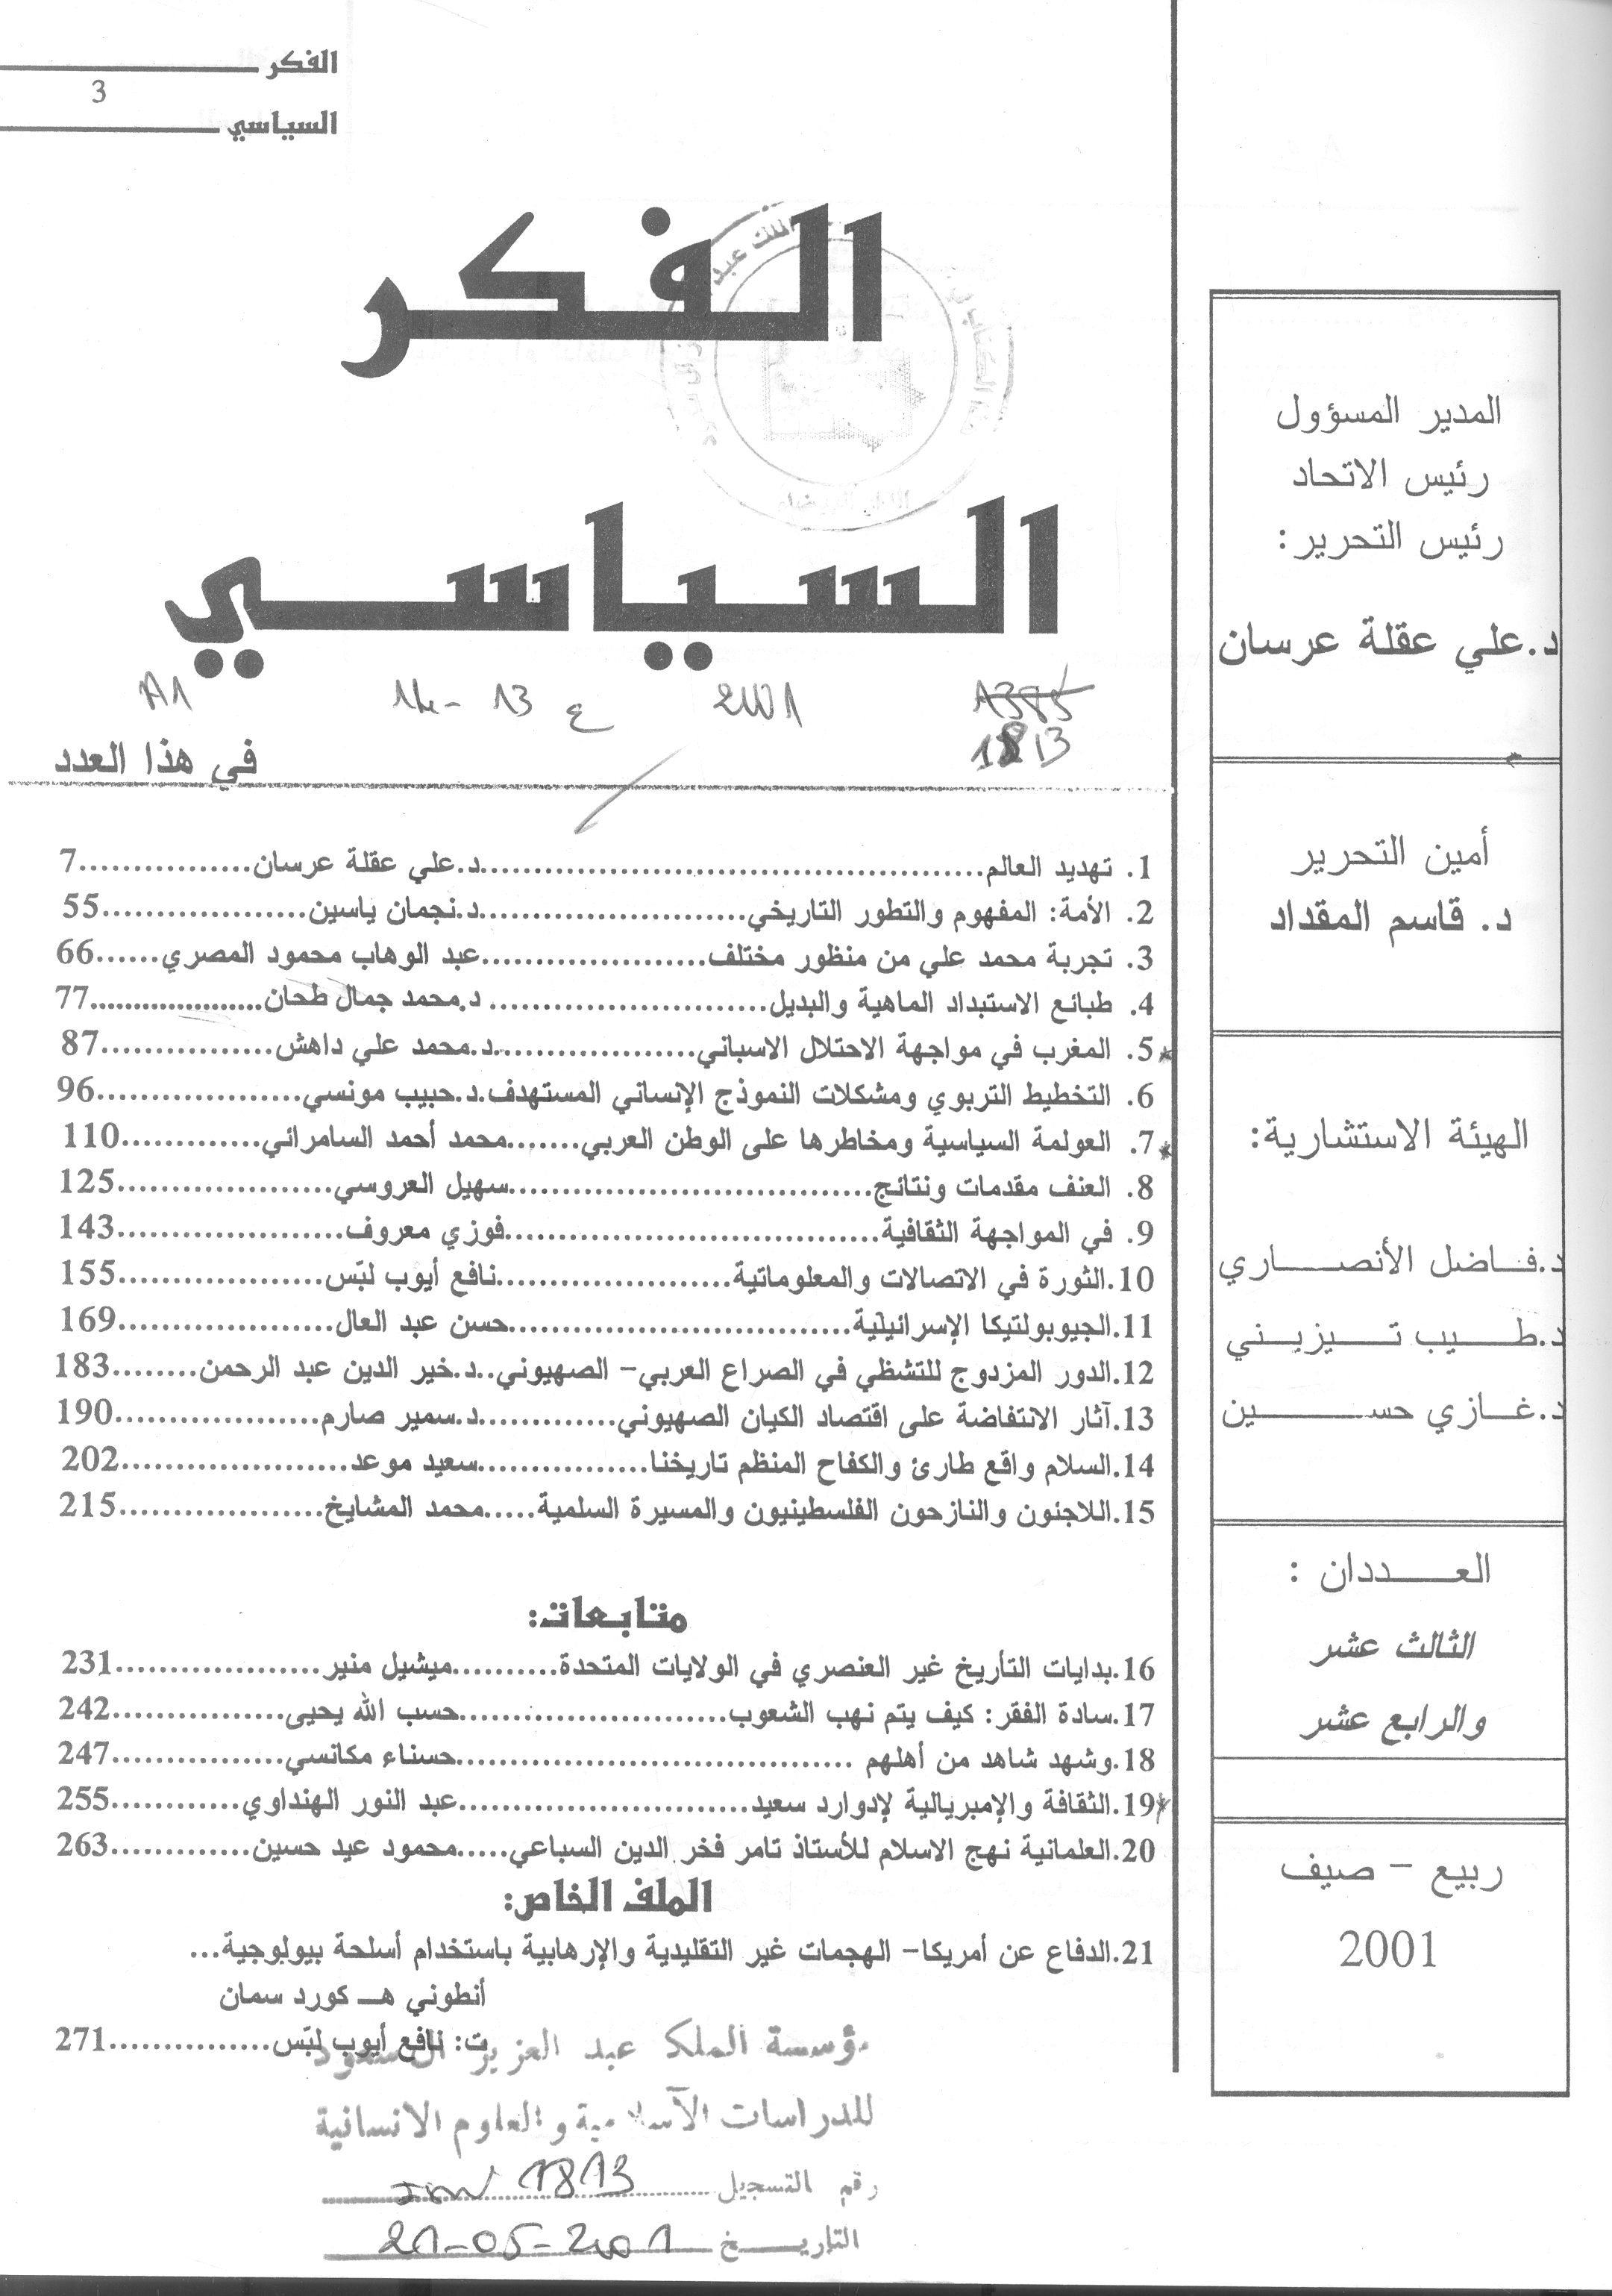 الفكر
3
السياسي
الفكر
السياسي
A1 14-13 ع 2001 A385
1813
في هذا العدد
1. تهديد العالم..........د.علي عقلة عرسان..........7
2. الأمة: المفهوم والتطور التاريخي..........د.نجمان ياسين..........55
3. تجربة محمد علي من منظور مختلف..........عبد الوهاب محمود المصري......66
4. طبائع الاستبداد الماهية والبديل.......... د.محمد جمال طحان..........77
5. المغرب في مواجهة الاحتلال الاسباني..........د.محمد علي داهش..........87
6. التخطيط التربوي ومشكلات النموذج الإنساني المستهدف.د.حبيب مونسي..........96
7. العولمة السياسية ومخاطرها على الوطن العربي.......محمد أحمد السامرائي..........110
8. العنف مقدمات ونتائج..........سهيل العروسي..........125
9. في المواجهة الثقافية..........فوزي معروف..........143
10.الثورة في الاتصالات والمعلوماتية..........نافع أيوب لبّس..........155
11.الجيوبولتيكا الإسرائيلية..........حسن عبد العال..........169
12.الدور المزدوج للتشظي في الصراع العربي– الصهيوني..د.خير الدين عبد الرحمن........183
13.آثار الانتفاضة على اقتصاد الكيان الصهيوني..........د.سمير صارم..........190
14.السلام واقع طارئ والكفاح المنظم تاريخنا..........سعيد موعد..........202
15.اللاجئون والنازحون الفلسطينيون والمسيرة السلمية.....محمد المشايخ..........215
متابعات:
16.بدايات التأريخ غير العنصري في الولايات المتحدة..........ميشيل منير..........231
17.سادة الفقر: كيف يتم نهب الشعوب..........حسب الله يحيى..........242
18.وشهد شاهد من أهلهم ..........حسناء مكانسي..........247
19.الثقافة والإمبريالية لإدوارد سعيد..........عبد النور الهنداوي..........255
20.العلمانية نهج الاسلام للأستاذ تامر فخر الدين السباعي.....محمود عيد حسين..........263
الملف الخاص:
21.الدفاع عن أمريكا– الهجمات غير التقليدية والإرهابية باستخدام أسلحة بيولوجية...
أنطوني هـ كورد سمان
ت: نافع أيوب لبّس..........271
مؤسسة الملك عبد العزيز آل سعود
للدراسات الاسلامية والعلوم الانسانية
رقم التسجيل 1813
التاريخ 21-05-2001
المدير المسؤول
رئيس الاتحاد
رئيس التحرير:
د.علي عقلة عرسان
أمين التحرير
د. قاسم المقداد
الهيئة الاستشارية:
د.فاضل الأنصاري
د.طيب تيزيني
د.غازي حسين
العددان :
الثالث عشر
والرابع عشر
ربيع – صيف
2001